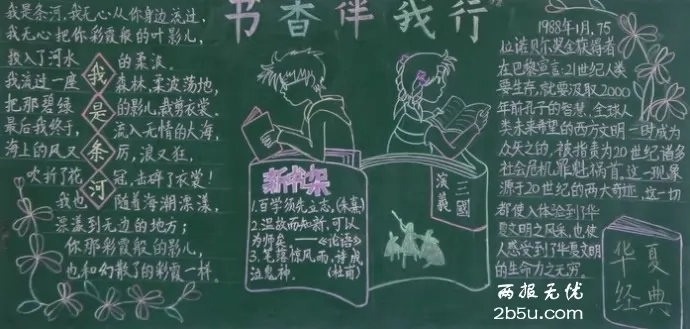 书香伴我行
我是条河，我无心从你身边流过，
我无心把你彩霞般的叶影儿，
投入了河水的柔波。
我流过一座森林，柔波荡地，
把那碧绿的影儿，裁剪衣裳。
最后我终于，流入无情的大海，
海上的风又厉，浪又狂，
吹折了花冠，击碎了衣裳！
我也随着海潮漂漾，
漂漾到无边的地方；
你那彩霞般的影儿，
也和幻散了的彩霞一样。
我是条河
新书架
1.百学须先立志。(朱熹)
2.温故而知新，可以
为师矣——《论语》
3.笔落惊风雨，诗成
泣鬼神。(杜甫)
三國
演义
1988年1月，75
位诺贝尔奖金获得者
在巴黎宣言：21世纪人类
要生存，就要汲取2000
年前孔子的智慧。全球人
类未来希望的西方文明一时成为
众矢之的，被指责为20世纪诸多
社会危机罪魁祸首，这一现象
源于20世纪的两大奇迹，这一切
都使人体验到了华
夏文明之风采，也使
人感受到了华夏文明
的生命力之无穷。
华夏
经典
两报无优
2b5u.com